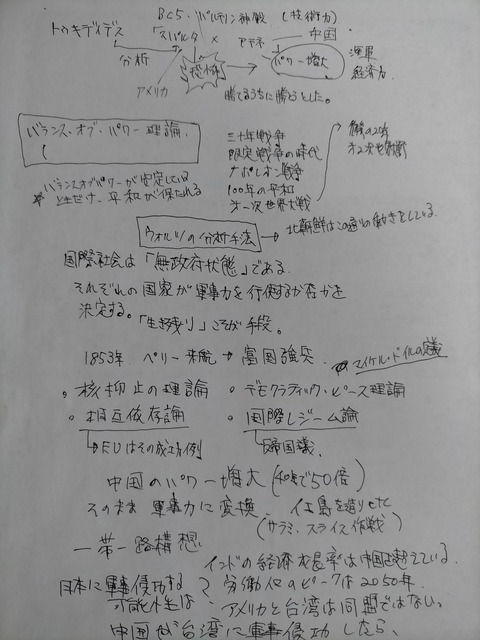 BC5. パルテノン神殿 (技術力)
トゥキディデス
「スパルタ × アテネ
中国
分析
恐怖
パワー増大
海軍
経済力
アメリカ
勝てるうちに勝とうとした。
バランス・オブ・パワー理論、
三十年戦争
限定戦争の時代
ナポレオン戦争
100年の平和
第一次世界大戦
20年
第2次世界大戦
※ バランスオブパワーが安定している
ときだけ、平和が保たれる
ウォルツの分析手法
北朝鮮はこの通りの動きをしている。
国際社会は「無政府状態」である
それぞれの国家が軍事力を行使するか否かを
決定する。「生き残り」こそが手段。
1853年 ペリー来航 → 富国強兵
マイケル・ドイルの定義
・核抑止の理論
・デモクラティック・ピース理論
・相互依存論
・国際レジーム論
→EUはその成功例
中国のパワー増大 (で50倍)
そのまま 軍事力に変換、
島を造り
(サラミ・スライス作戦)
一帯一路構想
インドの経済成長率は中国を越えている。
日本に軍事侵攻する
可能性は?
労働人口のピークは2050年
アメリカと台湾は同盟ではない。
中国が台湾に軍事侵攻したら、